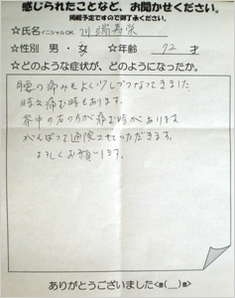 感じられたことなど、お聞かせください。
掲載予定ですので御了承ください。
☆氏名 イニシャルOK 川端寿栄
☆性別 男・女 ☆年齢 72 才
☆どのような症状が、どのようになったか。
腰の痛みもよく少しづつなってきました
時々痛む時もあります。
背中の右の方が痛む時がありま
がんばって通院させていただきます。
よろしくお願いします。
ありがとうございました<m(__)m>